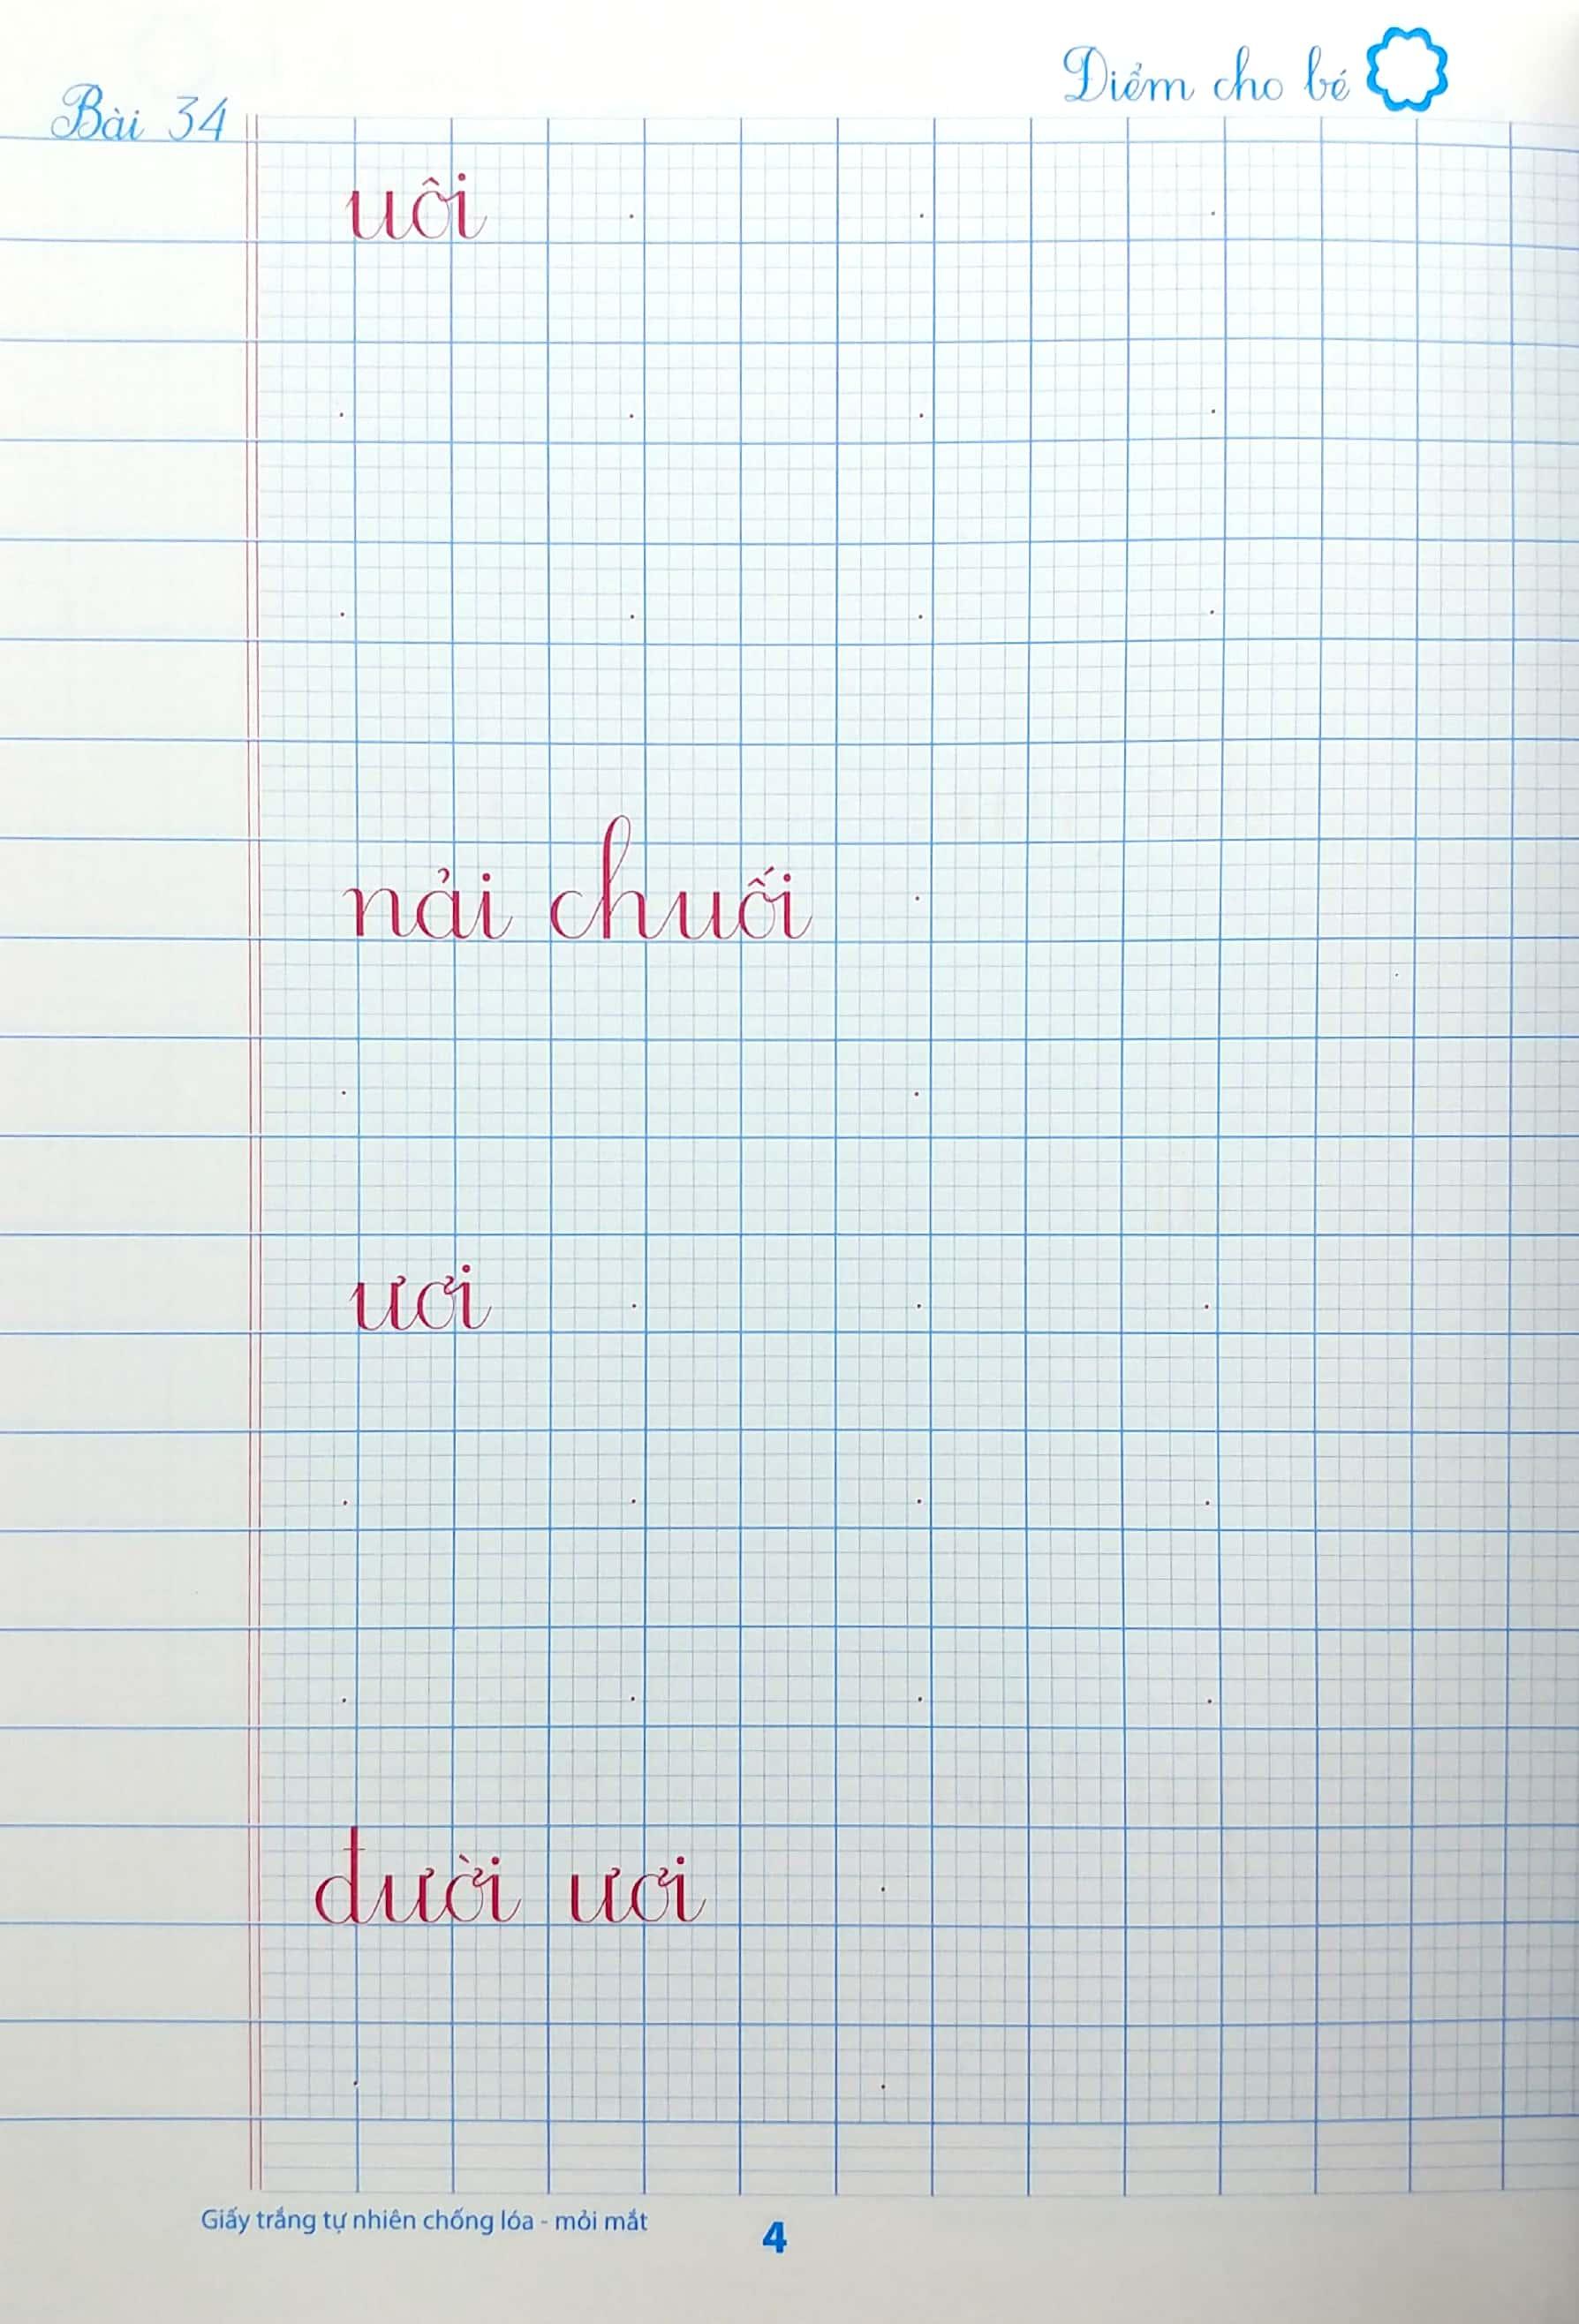 Điểm cho bé
Bài 34
uôi
nải chuối
ươi
đười ươi
Giấy trắng tự nhiên chống lóa - mỏi mắt
4